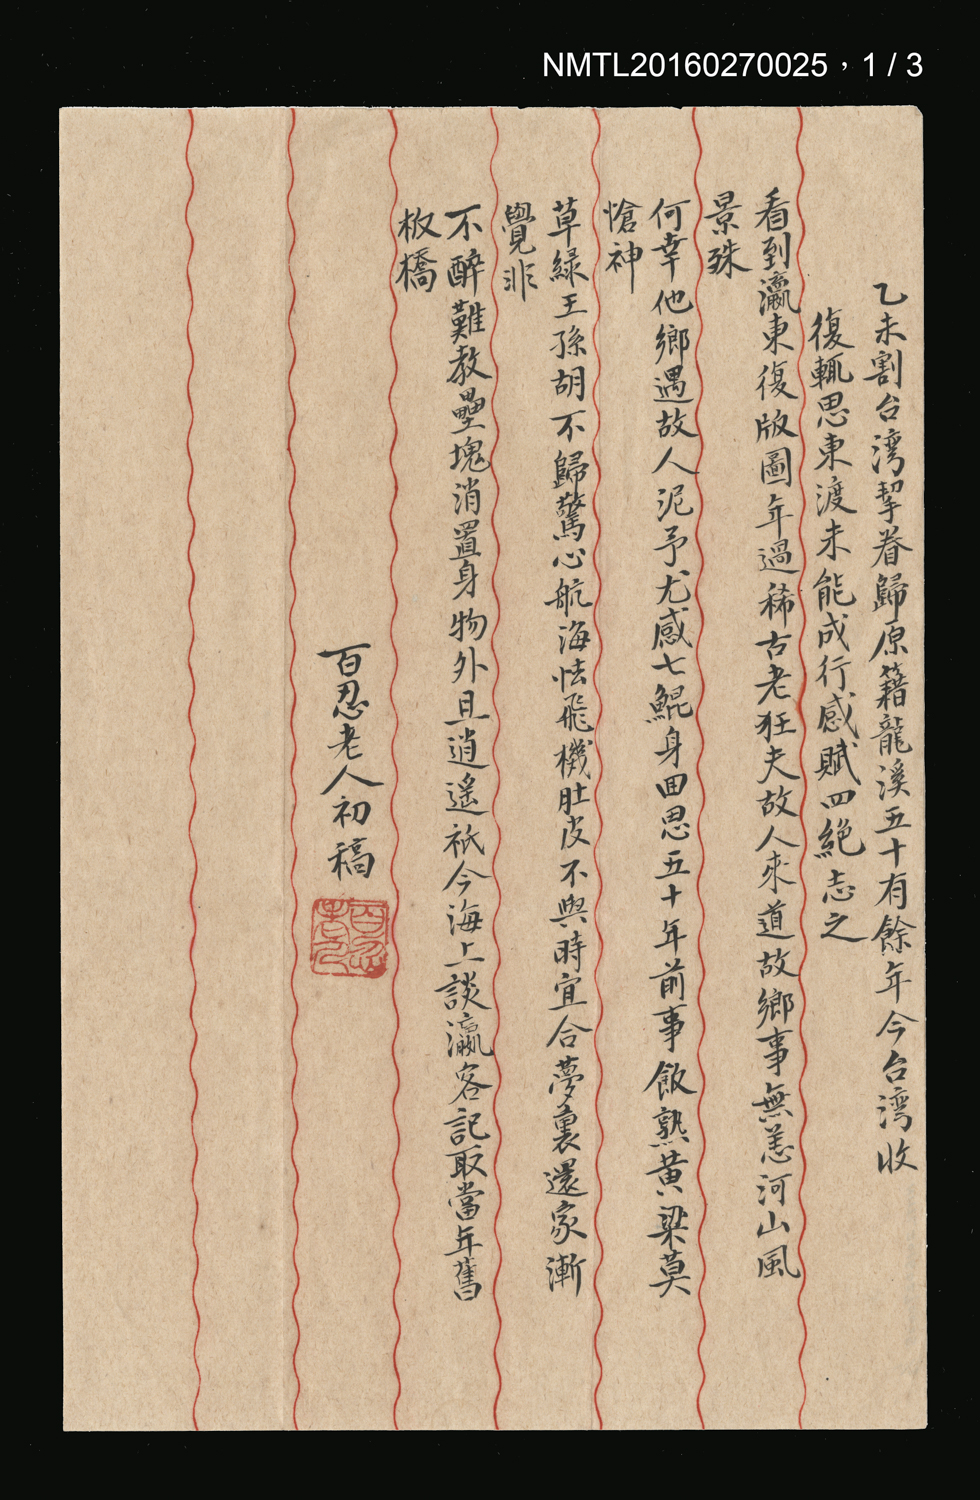 NMTL20160270025，1 / 3
乙未割台湾挈眷歸原籍龍溪五十有餘年今台湾收
復輒思東渡未能成行感賦四絕志之
看到瀛東復版圖年過稀古老狂夫故人來道故鄉事無恙河山風
景殊
何幸他鄉遇故人泥予尤感七鯤身回思五十年前事飯熟黃粱莫
愴神
草綠王孫胡不歸驚心航海怯飛機肚皮不與時宜合夢裏還家漸
覺非
不醉難教壘塊消置身物外且逍遙祇今海上談瀛客記取當年舊
板橋
百忍老人初稿
百忍老人